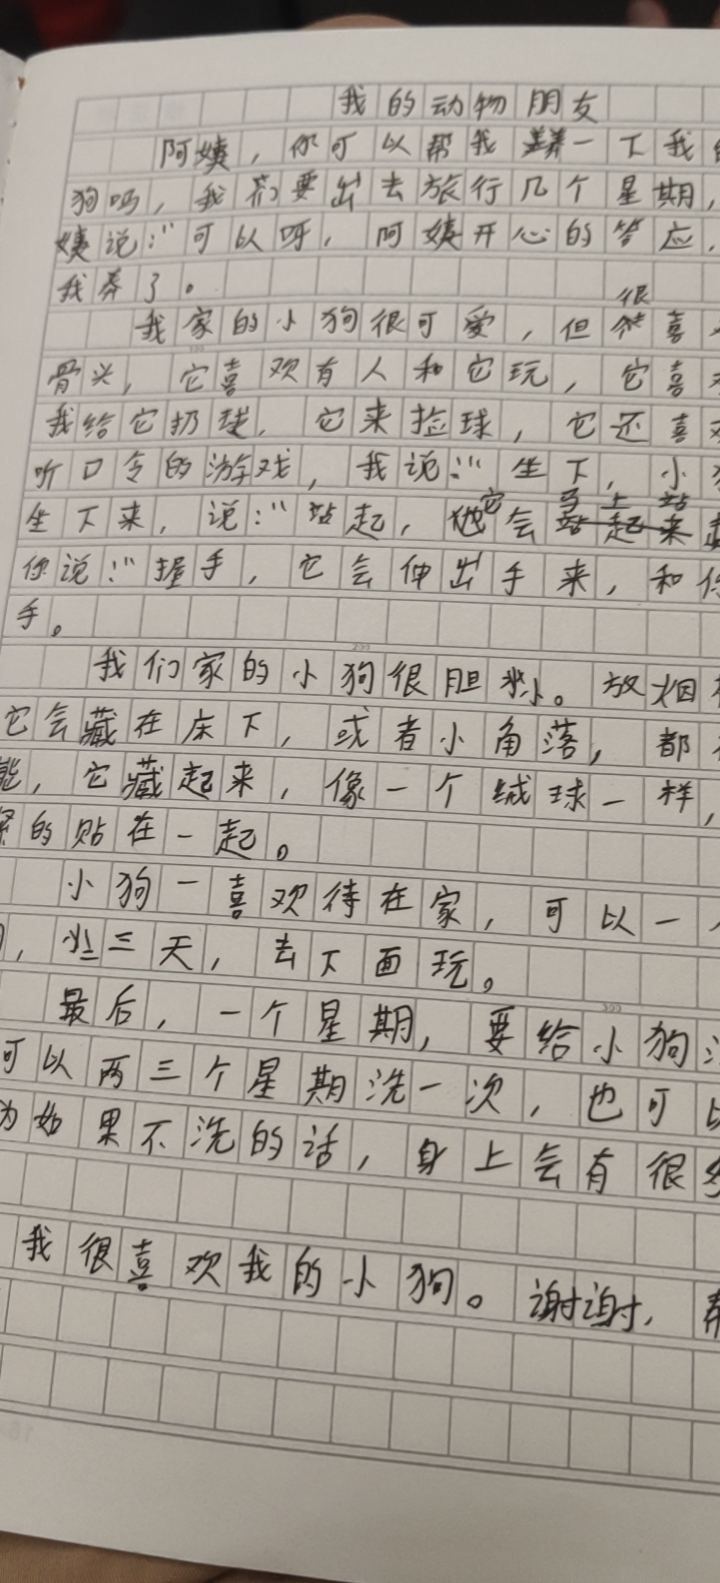 我的动物朋友
阿姨，你可以帮我养一下我
狗吗，我们要出去旅行几个星期，
姨说：“可以呀，阿姨开心的答应，
我养了。
我家的小狗很可爱，但很喜
骨头，它喜欢有人和它玩，它喜
我给它扔球，它来捡球，它还喜
听口令的游戏，我说：“坐下，小
坐下来，说：“站起，它会马上站
你说：“握手，它会伸出手来，和
手。
我们家的小狗很胆小。放烟
它会藏在床下，或者小角落，都
能，它藏起来，像一个绒球一样，
的贴在一起。
小狗一喜欢待在家，可以一
，些三天，去下面玩。
最后，一个星期，要给小狗
可以两三个星期洗一次，也可
为如果不洗的话，身上会有很
我很喜欢我的小狗。谢谢，